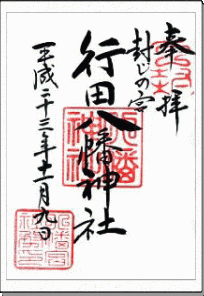 奉拝
封じの宮
行田八幡神社
平成二十三年十一月九日